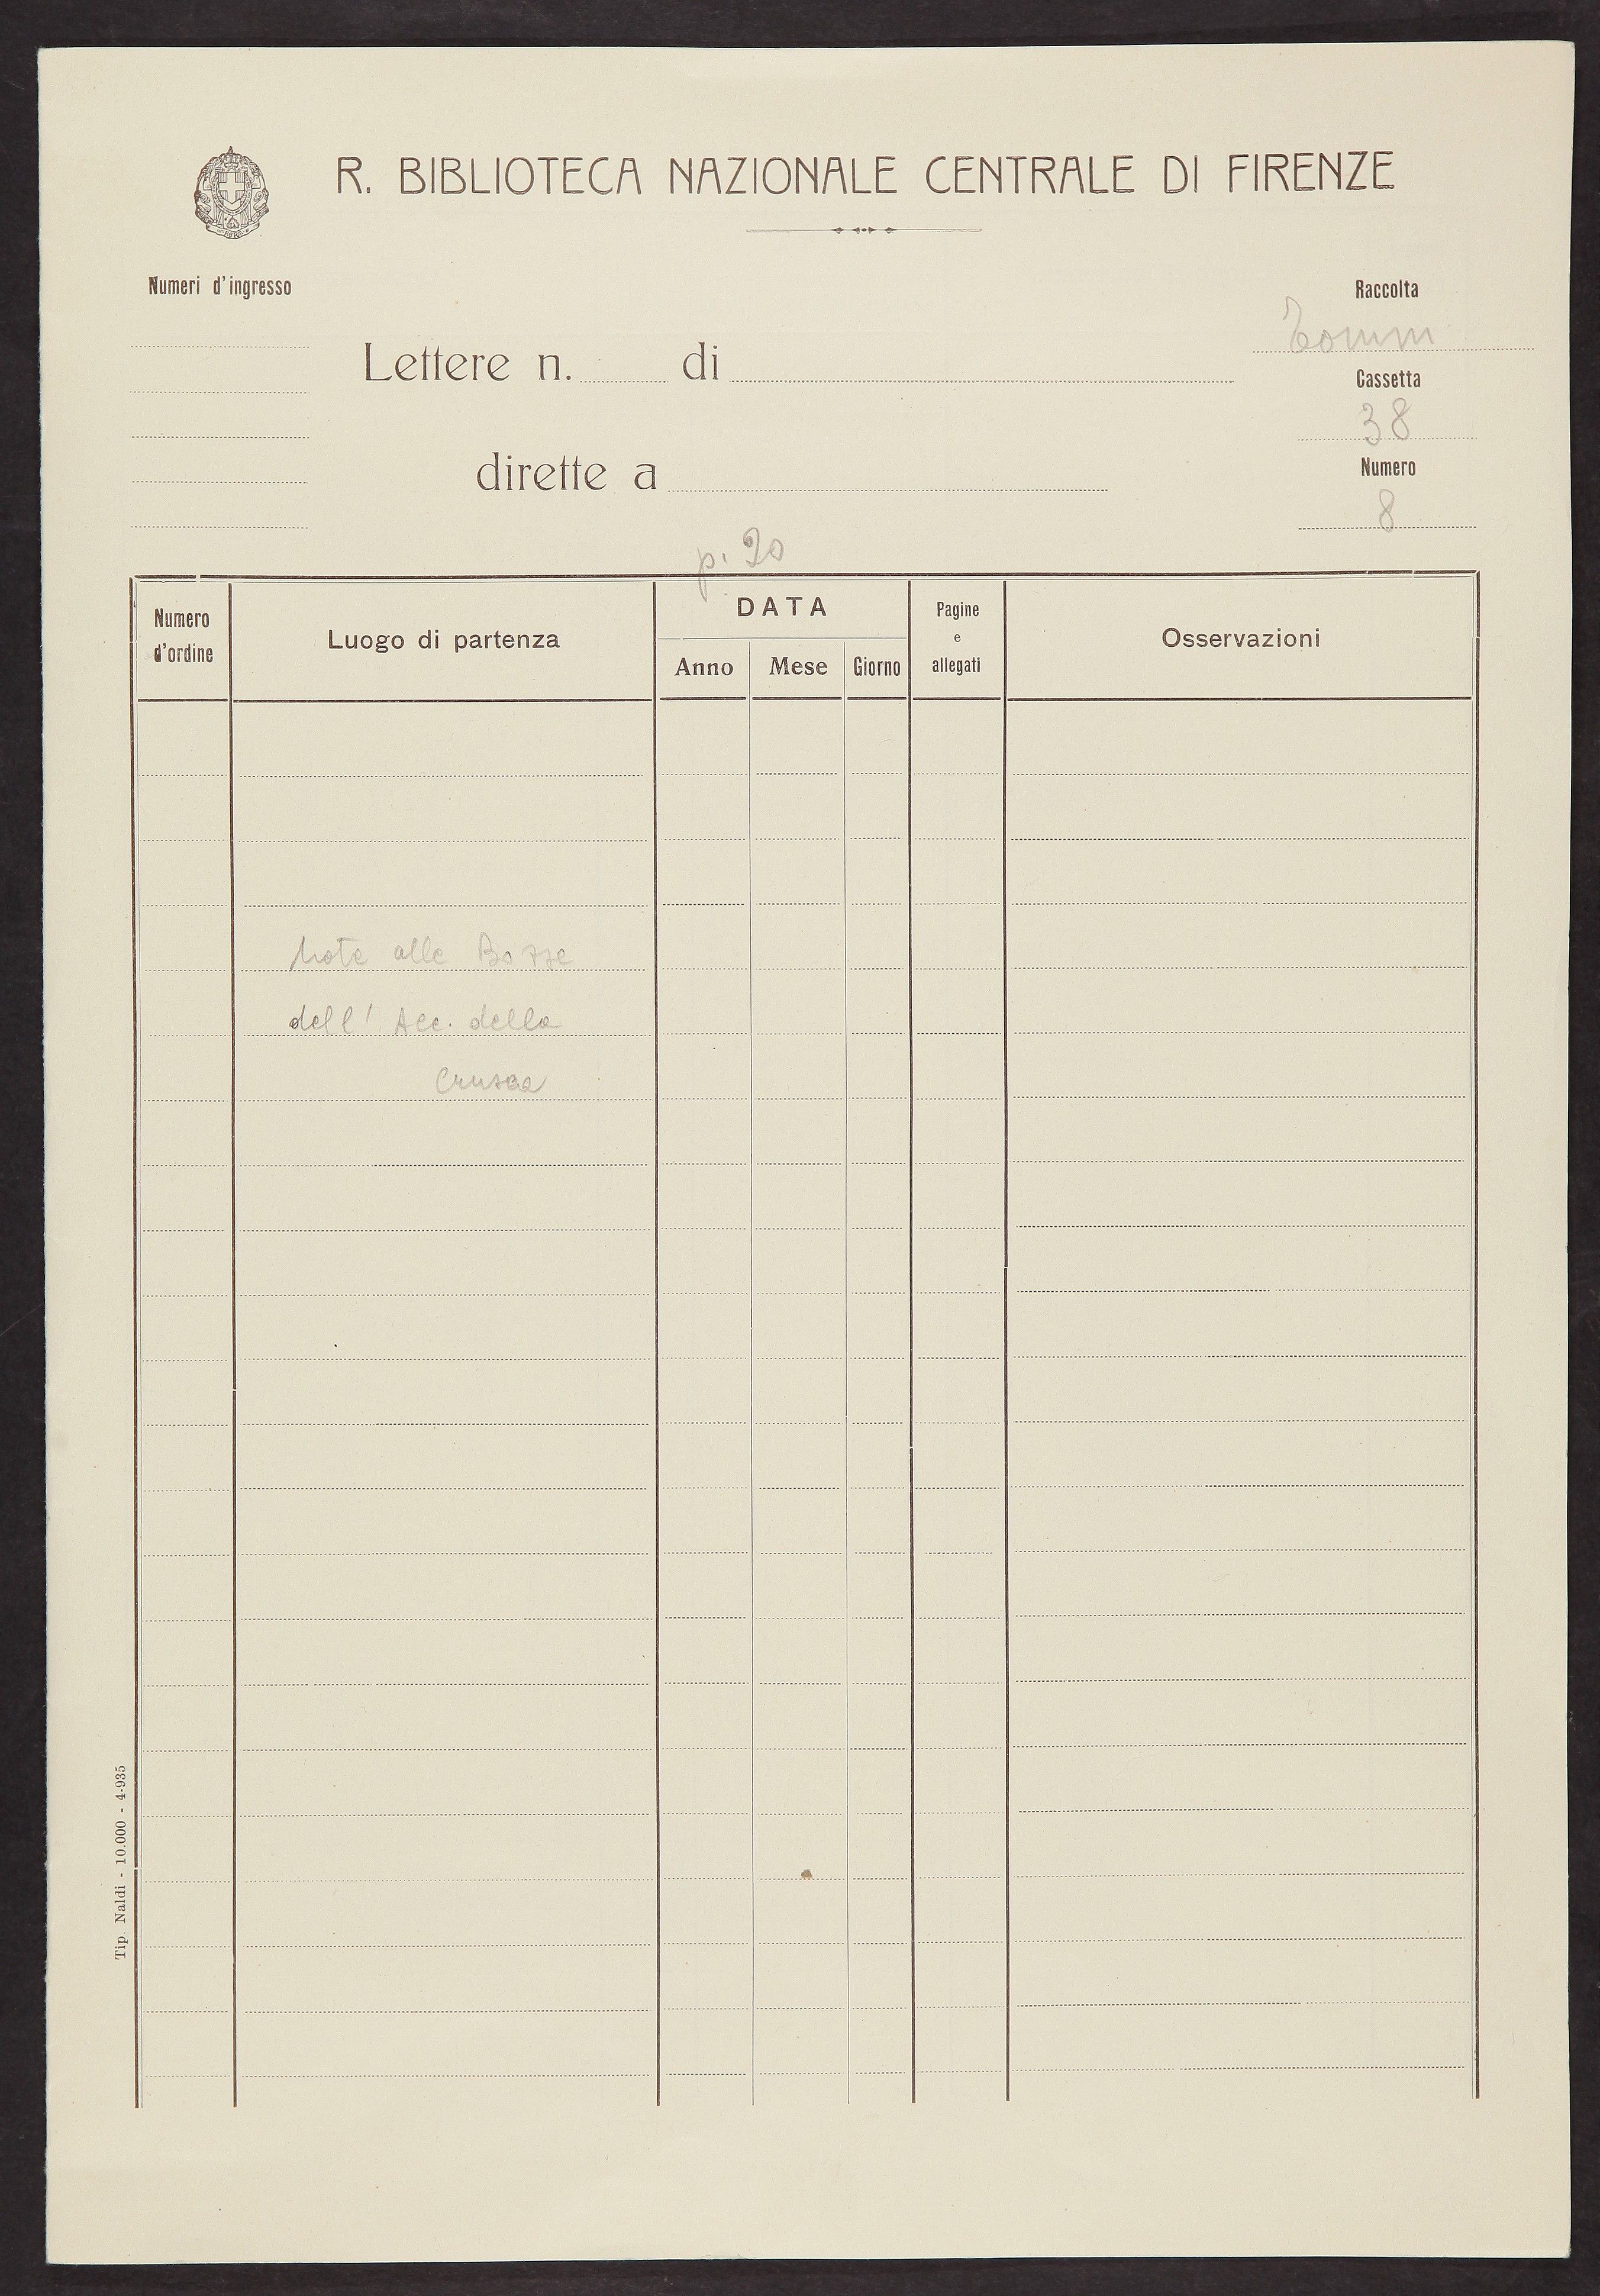 R. BIBLIOTECA NAZIONALE CENTRALE DI FIRENZE
Numeri d'ingresso
Raccolta
Tomm
Lettere n. di
Cassetta
38
dirette a
Numero
8
p. 20
Numero d'ordine
Luogo di partenza
DATA
Anno
Mese
Giorno
Pagine e allegati
Osservazioni
Note alle Bozze
dell' Acc. della
Crusca
Tip. Naldi - 10.000 - 4-935